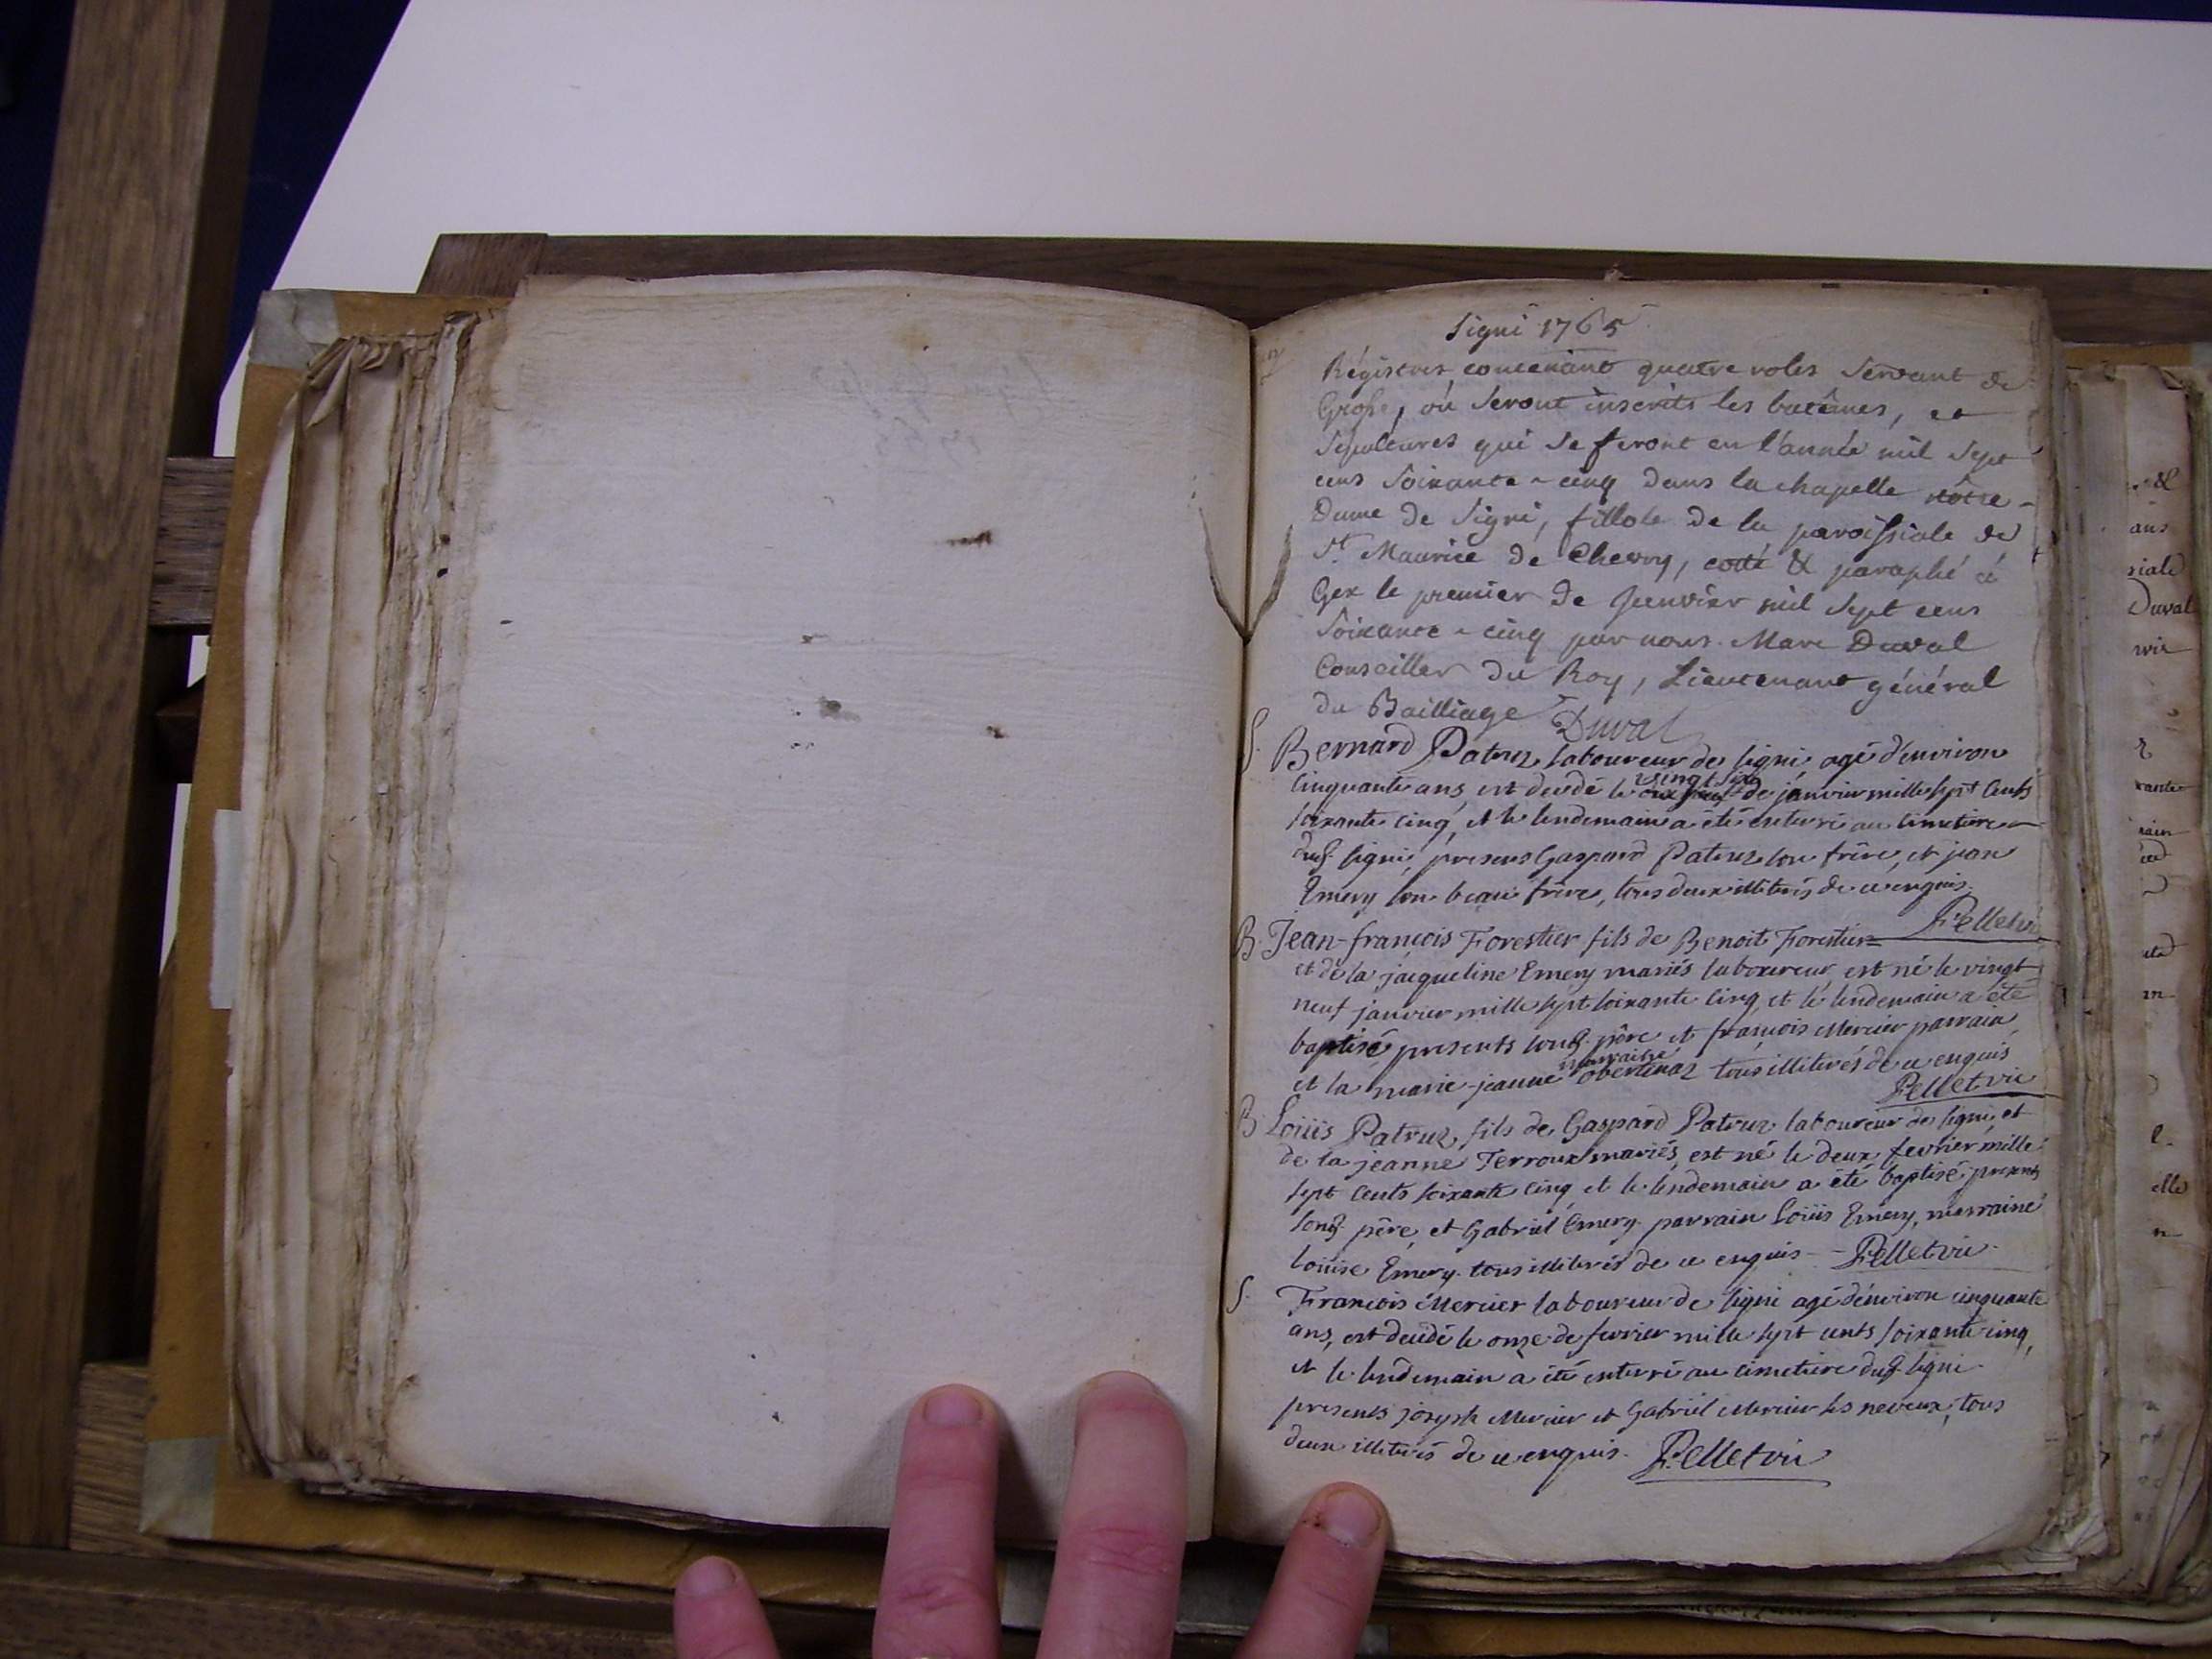 Signi 1765
Régistres contenant quatre roles Servant de
Grosse, où seront inscrits les batêmes, et
Sepultures qui se feront en l'année mil Sept
cens Soixante-cinq dans la chapelle nôtre-
Dame de Signi, fillole de la paroissiale de
St. Maurice de Chevry, cotté & paraphé à
Gex le premier de Janvier mil Sept cens
Soixante-cinq par nous Marc Duval
Conseiller du Roy, Lieutenant général
du Bailliage Duval
S. Bernard Patruz laboureur de signi agé d'environ
vingt six
cinquante ans est decédé le de janvier mille sept cents
soixante cinq, et le lendemain a été enterré au cimetiere
dud. signi, presens Gaspard Patruz son frère, et jean
Emery son beau frère, tous deux illiterés de ce enquis.
Pellet vic
B. Jean-françois Forestier fils de Benoit Forestier
et de la jacqueline Emery mariés laboureur, est né le vingt
neuf janvier mille sept soixante cinq, et le lendemain a été
baptisé, presents sond. père et françois Mercier parrain,
marraine
et la marie-jeanne tous illiterés de ce enquis
Pellet vic
B Loüis Patruz, fils de Gaspard Patruz laboureur de signi, et
de la jeanne Terroux mariés, est né le deux fevrier mille
sept cents soixante cinq et le lendemain a été baptisé presents
sond. père, et Gabriel Emery. parrain Loüis Emery, marraine
Loüise Emery. tous illiterés de ce enquis - Pellet vic.
S. François Mercier laboureur de signi agé d'environ cinquante
ans, est decédé le onze de fevrier mille sept cents soixante cinq,
et le lendemain à été enterré au cimetiere dud. signi.
presents joseph Mercier et Gabriel Mercier ses neveux, tous
deux illiterés de ce enquis. Pellet vic
&
ans
siale
Duval
rante
elle